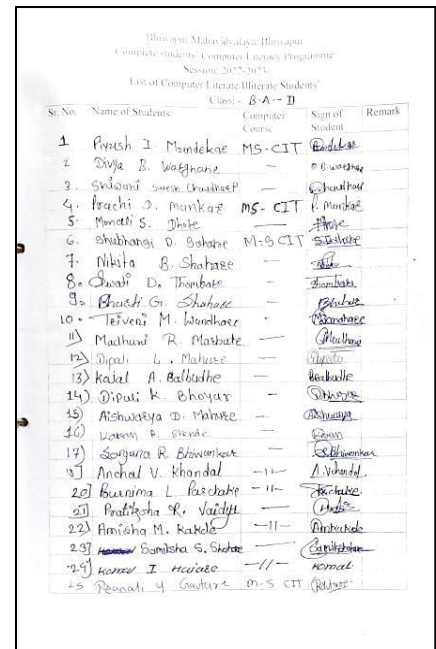 Bhiwapur Mahavidyalaya, Bhiwapur
Complete students' Computer Literacy Programme
Session: 2022-2023
List of Computer Literate/Illiterate Students'
Class:- B-A-II
Sr. No. Name of Students Computer Course Sign of Student Remark
1 Piyush I. Mandekar MS-CIT
2 Divya B. Watghane — D.B. Watghane
3. Shivani Suresh Chaudhari — S. Chaudhari
4. Prachi D. Mankar MS-CIT P. Mankar
5. Monali S. Dhote — Dhote
6. Shubhangi D. MS-CIT
7. Nikita B. Shahare —
8. Swati D. Thombare — Thombare
9. Bhakti G. Shahare —
10. Triveni M. Wandhare
11) Madhuri R. Marbate —
12) Dipali L. Mahure —
13) Kajal A. Balbudhe — Balbudhe
14) Dipali K. Bhoyar —
15) Aishwarya D. Mahure — Aishwarya
16) Karan R. — Karan
17) Sanjana R. Bhivankar — Bhivankar
18] Anchal V. Khandal —11—
20] Purnima L Parchake —11—
21] Pratiksha R. Vaidya —
22] Amisha M. Kakde —11—
23] Samiksha S. —
24] Komal I —11— Komal
25 Pranali Y M-S CIT